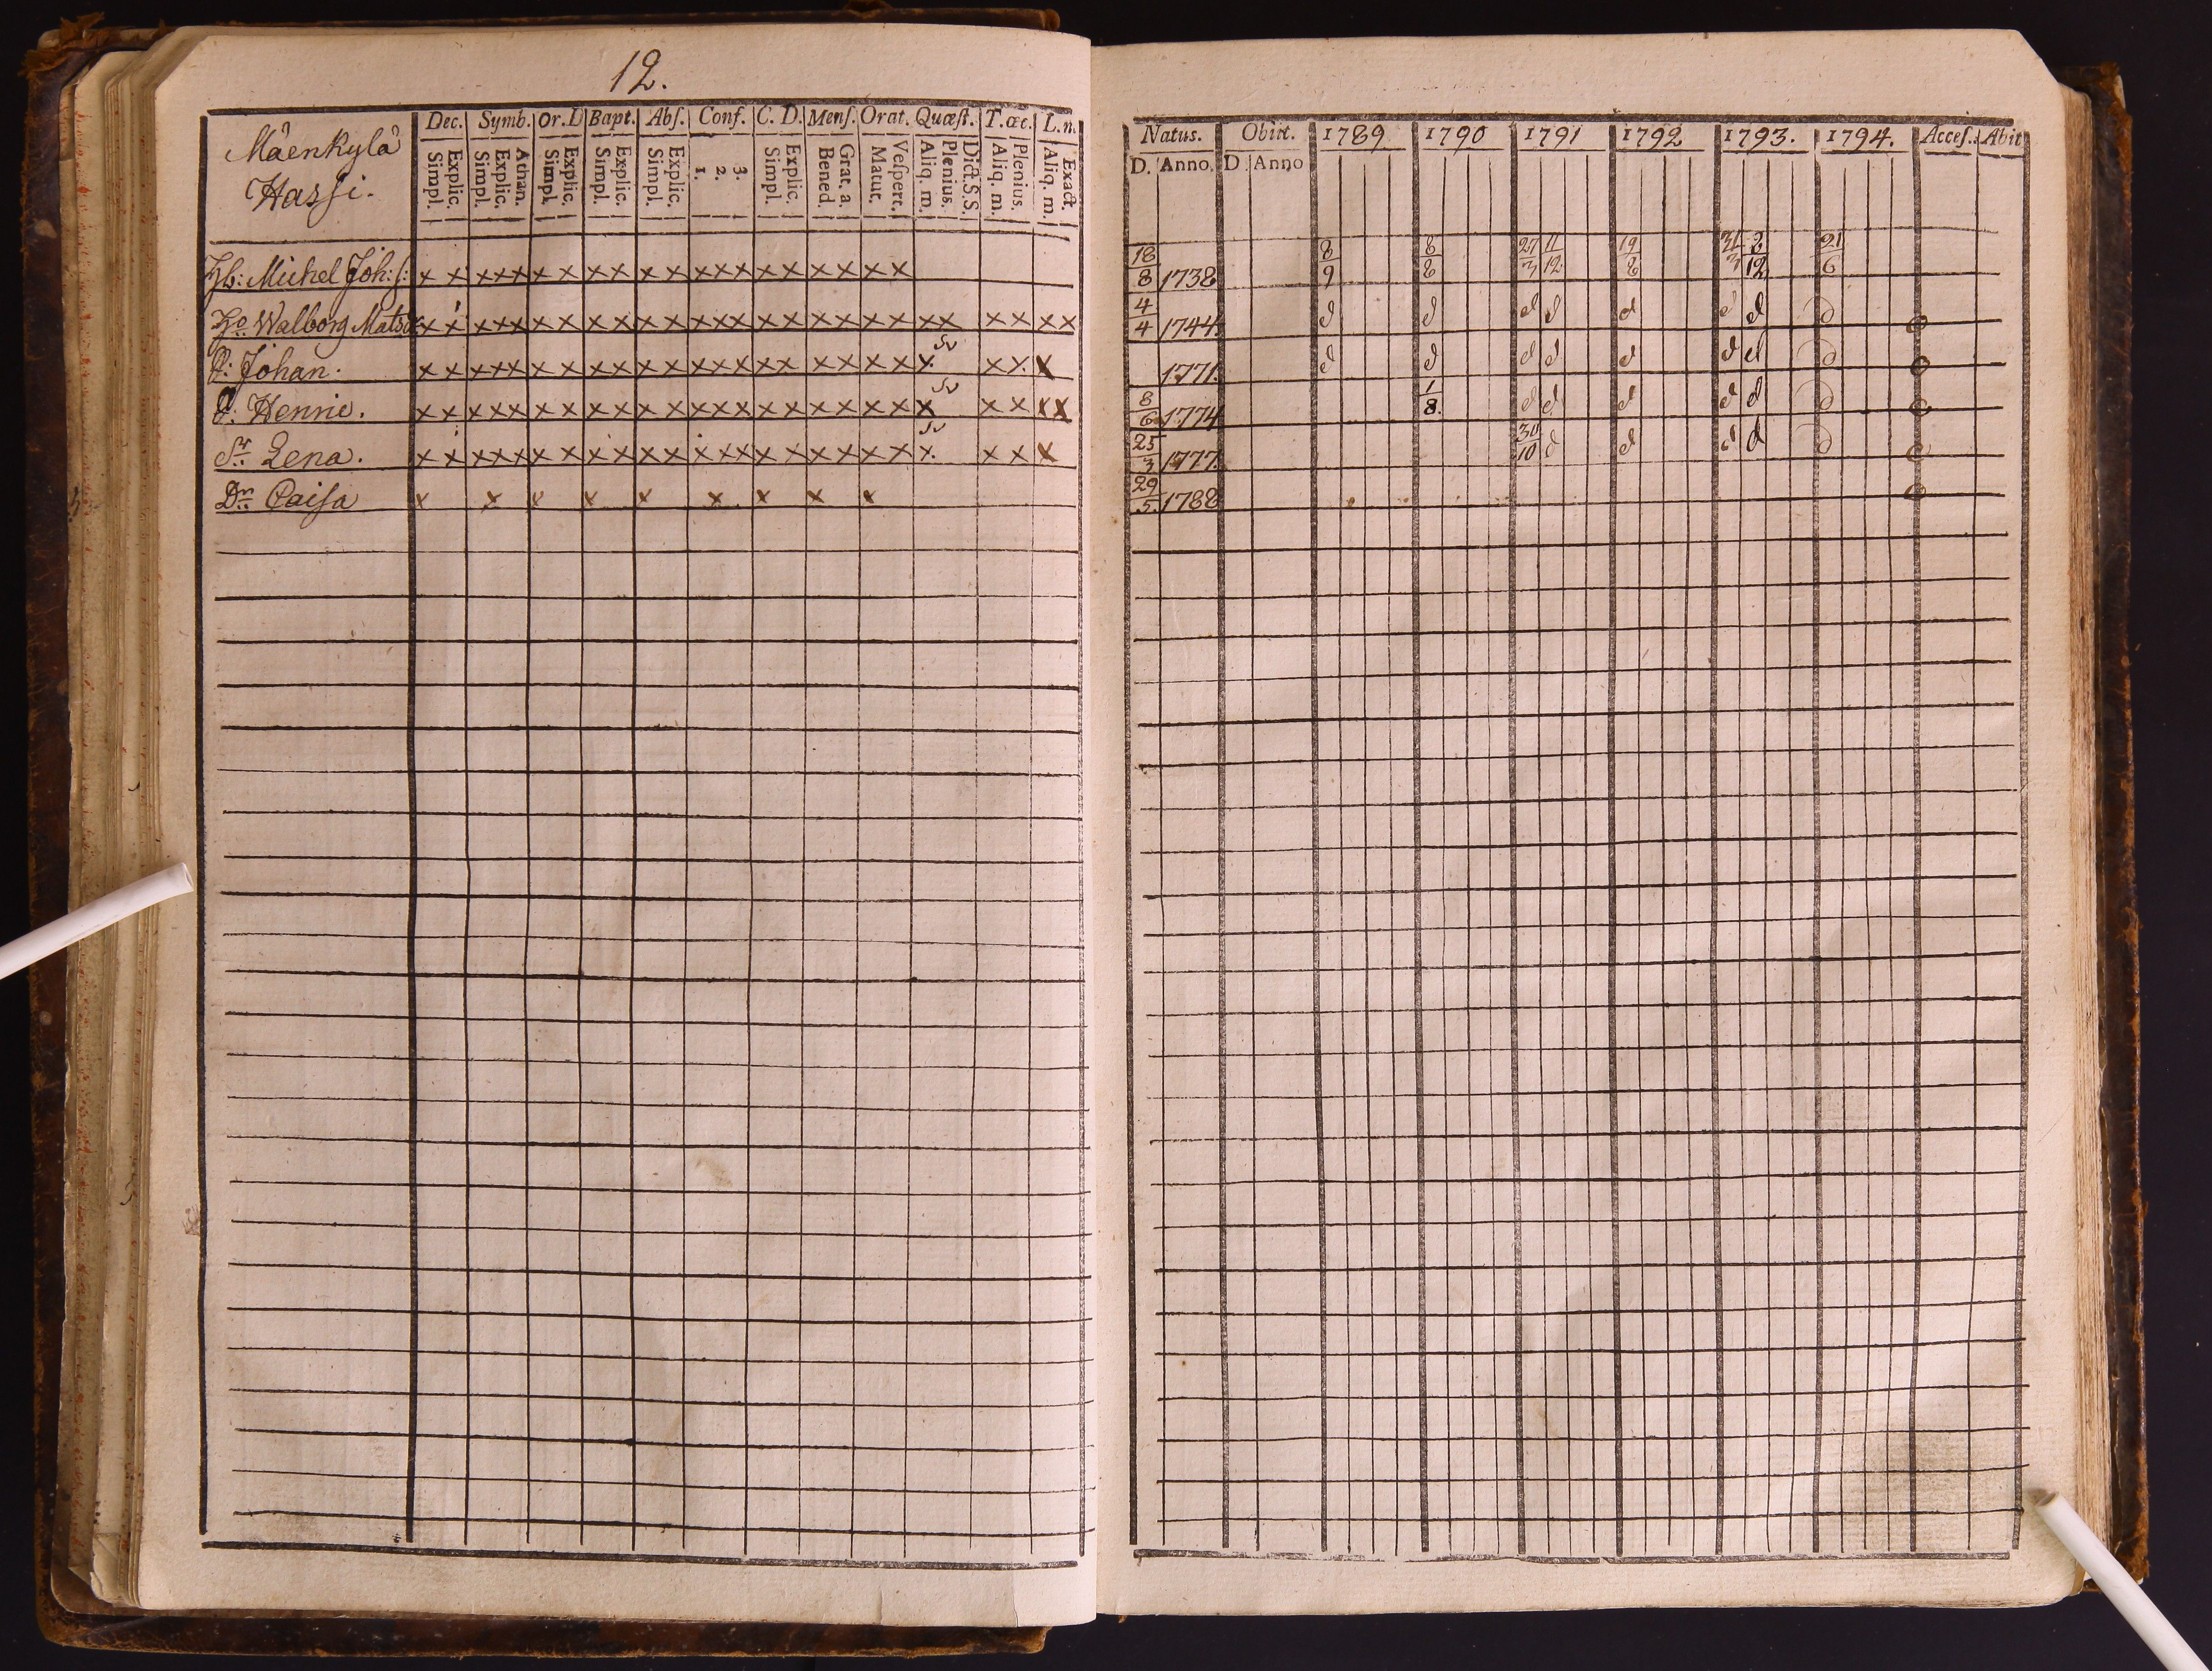 12.
Mäenkylä
Hassi.
Dec. Symb. Or. D Bapt. Abſ. Conf. C. D. Menſ. Orat. Quæſt. T. œc. L. n.
Simpl. Explic. Simpl. Explic. Athan. Simpl. Explic. Simpl. Explic. Simpl. Explic. 1. 2. 3. Simpl. Explic. Bened. Grat. a. Matut. Veſpert. Aliq. m. Plenius. Dict. S.S. Aliq. m. Plenius. Aliq. m. Exact.
Hb: Michel Joh:s: x x x x x x x x x x x x x x x x x x x x
Ho Walborg Matsdr x x x x x x x x x x x x x x x x x x x x x x x x x x
S: Johan. x x x x x x x x x x x x x x x x x x x x x. Sv x x. x
S: Henric. x x x x x x x x x x x x x x x x x x x x x Sv x x x x
Sr Lena. x x x x x x x x x x x x x x x x x x x x x. Sv x x x
Dr Caisa x x x x x x x x x
Natus. Obiit. 1789 1790 1791 1792 1793. 1794. Acceſ. Abit
D. Anno. D Anno
18/8 1738 8/9 8/8 27/3 11/12 19/8 31/3 2/12 21/6
4/4 1744 d d d d d d d d
1771. d d d d d d d d
8/6 1774 1/8. d d d d d d
25/3 1777. 30/10 d d d d d
29/5 1788